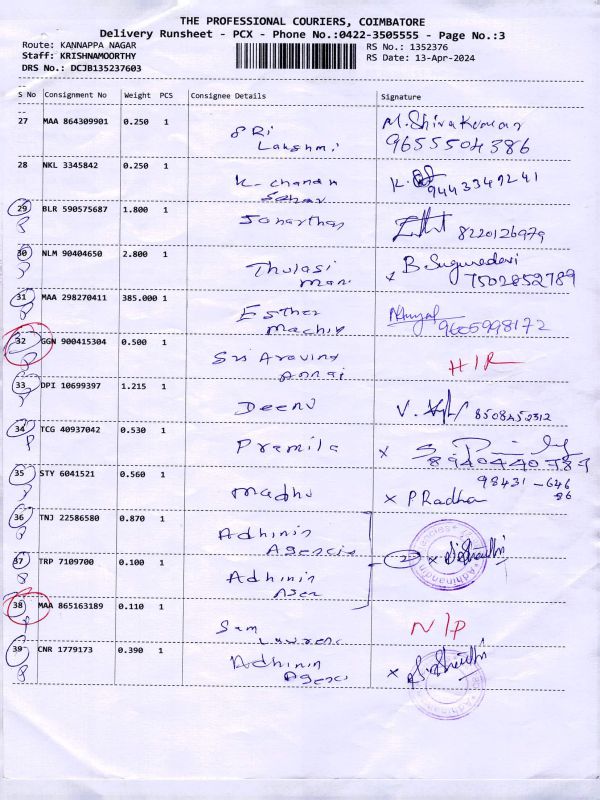 THE PROFESSIONAL COURIERS, COIMBATORE
Delivery Runsheet - PCX - Phone No.:0422-3505555 - Page No.:3
Route: KANNAPPA NAGAR
RS No.: 1352376
Staff: KRISHNAMOORTHY
RS Date: 13-Apr-2024
DRS No.: DCJB135237603
S No Consignment No Weight PCS Consignee Details Signature
27 MAA 864309901 0.250 1 SRi M. Shiva Kumar
Lakshmi 9655504386
28 NKL 3345842 0.250 1 K. Chandn K.
9443349241
29 BLR 590575687 1.800 1 Janarthan 8220126979
30 NLM 90404650 2.800 1 Thulasi x B. Sugunadevi
Mani 7502852789
31 MAA 298270411 385.000 1 Esther
9665998172
32 GGN 900415304 0.500 1 Sri Aravind H/R
Annai
33 DPI 10699397 1.215 1 Deenu V.
34 TCG 40937042 0.530 1 Pramila x
8940440789
35 STY 6041521 0.560 1 Madhu 98431-646
86
x P Radha
36 TNJ 22586580 0.870 1 Adhinin
Agencis
37 TRP 7109700 0.100 1 Adhinin 2 x
Agen
38 MAA 865163189 0.110 1 Sam N/P
Lawrenc
39 CNR 1779173 0.390 1 Adhinin x
Agenci